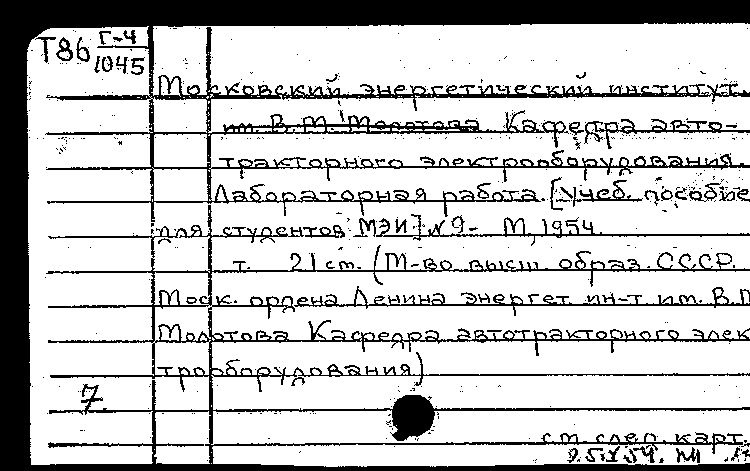 Т86 Г-4
1045
Московский энергетический институт.
им. В.М. Молотова Кафедра авто-
тракторного электрооборудования.
Лабораторная работа. [Учеб. пособие
для студентов МЭИ] №9- М, 1954.
т. 21 см. (М-во высш. образ. СССР.
Моск. ордена Ленина энергет. ин-т им. В.М
Молотова Кафедра автотракторного элек
трооборудования)
7.
см. след. карт.